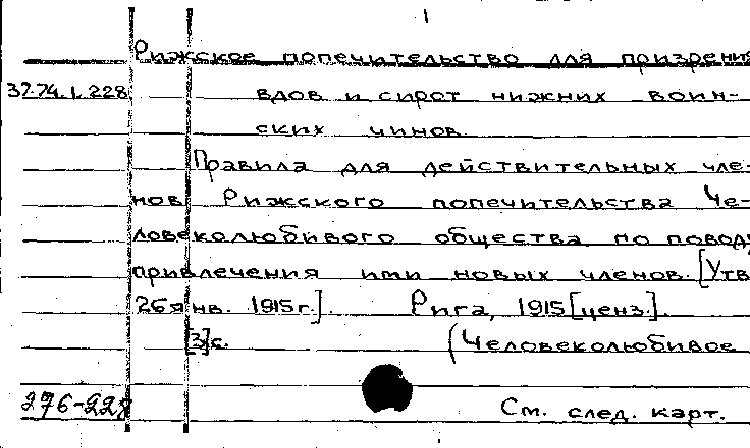 1
Рижское попечительство для призрения
37.74.1.228 вдов и сирот нижних воин-
ских чинов.
Правила для действительных чле-
нов Рижского попечительства Че-
ловеколюбивого общества по поводу
привлечения ими новых членов. [Утв.
26 янв. 1915 г.]. Рига, 1915 [ценз.].
[3] с. (Человеколюбивое
276-228 См. след. карт.